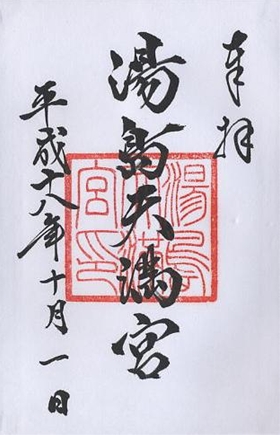 奉拝
湯島天満宮
平成十八年十月一日
湯島天満宮印